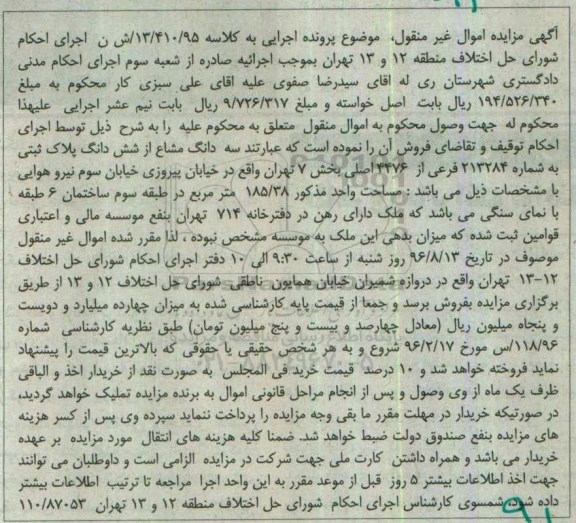 آگهی مزایده اموال غیر منقول، موضوع پرونده اجرایی به کلاسه ۱۳/۴۱۰/۹۵/ش ن اجرای احکام
شورای حل اختلاف منطقه ۱۲ و ۱۳ تهران بموجب اجرائیه صادره از شعبه سوم اجرای احکام مدنی
دادگستری شهرستان ری له اقای سیدرضا صفوی علیه اقای علی سبزی کار محکوم به مبلغ
۱۹۴/۵۲۶/۳۴۰ ریال بابت اصل خواسته و مبلغ ۹/۷۲۶/۳۱۷ ریال بابت نیم عشر اجرایی علیهذا
محکوم له جهت وصول محکوم به اموال منقول متعلق به محکوم علیه را به شرح ذیل توسط اجرای
احکام توقیف و تقاضای فروش آن را نموده است که عبارتند سه دانگ مشاع از شش دانگ پلاک ثبتی
به شماره ۲۱۳۲۸۴ فرعی از ۴۴۷۶ اصلی بخش ۷ تهران واقع در خیابان پیروزی خیابان سوم نیرو هوایی
با مشخصات ذیل می باشد : مساحت واحد مذکور ۱۸۵/۳۸ متر مربع در طبقه سوم ساختمان ۶ طبقه
با نمای سنگی می باشد که ملک دارای رهن در دفترخانه ۷۱۴ تهران بنفع موسسه مالی و اعتباری
قوامین ثبت شده که میزان بدهی این ملک به موسسه مشخص نبوده ، لذا مقرر شده اموال غیر منقول
موصوف در تاریخ ۹۶/۸/۱۳ روز شنبه از ساعت ۹:۳۰ الی ۱۰ دفتر اجرای احکام شورای حل اختلاف
۱۲-۱۳ تهران واقع در دروازه شمیران خیابان همایون ناطقی شورای حل اختلاف ۱۲ و ۱۳ از طریق
برگزاری مزایده بفروش برسد و جمعا از قیمت پایه کارشناسی شده به میزان چهارده میلیارد و دویست
و پنجاه میلیون ریال (معادل چهارصد و بیست و پنج میلیون تومان) طبق نظریه کارشناسی شماره
۱۱۸/۹۶/س مورخ ۹۶/۲/۱۷ شروع و به هر شخص حقیقی یا حقوقی که بالاترین قیمت را پیشنهاد
نماید فروخته خواهد شد و ۱۰ درصد قیمت خرید فی المجلس به صورت نقد از خریدار اخذ و الباقی
ظرف یک ماه از وی وصول و پس از انجام مراحل قانونی اموال به برنده مزایده تملیک خواهد گردید،
در صورتیکه خریدار در مهلت مقرر ما بقی وجه مزایده را پرداخت ننماید سپرده وی پس از کسر هزینه
های مزایده بنفع صندوق دولت ضبط خواهد شد. ضمنا کلیه هزینه های انتقال مورد مزایده بر عهده
خریدار می باشد و همراه داشتن کارت ملی جهت شرکت در مزایده الزامی است و داوطلبان می توانند
جهت اخذ اطلاعات بیشتر ۵ روز قبل از موعد مقرر به این واحد اجرا مراجعه تا ترتیب اطلاعات بیشتر
داده شود. شمسوی کارشناس اجرای احکام شورای حل اختلاف منطقه ۱۲ و ۱۳ تهران ۱۱۰/۸۷۰۵۳